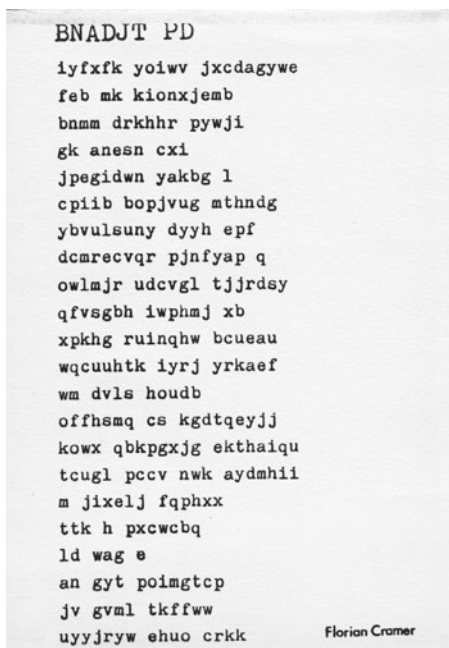 BNADJT PD
iyfxfk yoiwv jxcdagywe
feb mk kionxjemb
bnmm drkhhr pywji
gk anesn cxi
jpegidwn yakbg l
cpiib bopjvug mthndg
ybvulsuny dyyh epf
dcmrecvqr pjnfyap q
owlmjr udcvgl tjjrdsy
qfvsgbh iwphmj xb
xpkhg ruinqhw bcueau
wqcuuhtk iyrj yrkaef
wm dvls houdb
offhsmq cs kgdtqeyjj
kowx qbkpgxjg ekthaiqu
tcugl pccv nwk aydmhii
m jixelj fqphxx
ttk h pxcwcbq
ld wag e
an gyt poimgtcp
jv gvml tkffww
uyyjryw ehuo crkk
Florian Cramer